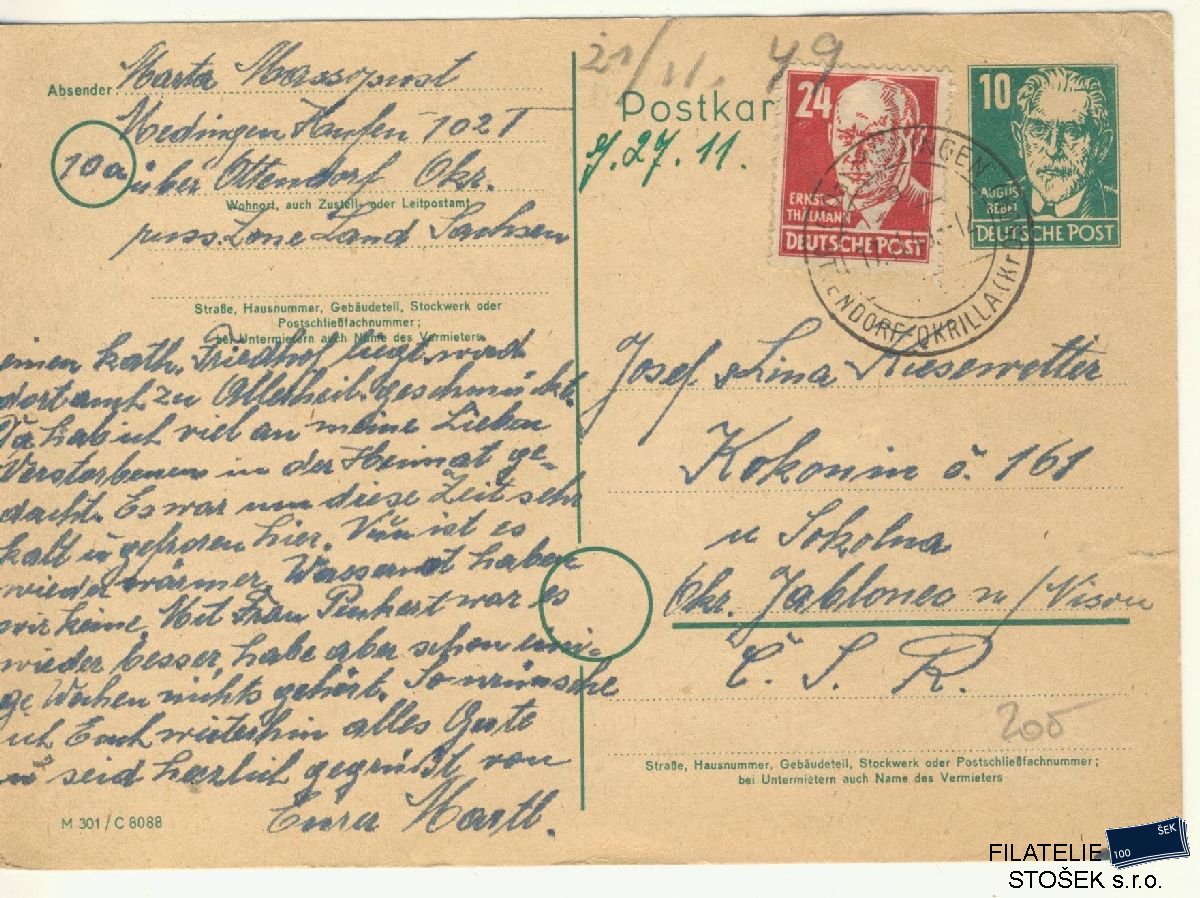 Absender Marta Massopust
Medingen Haufen 102 I
10a
über Ottendorf Okr.
Wohnort, auch Zustell- oder Leitpostamt
russ. Zone Land Sachsen
Straße, Hausnummer, Gebäudeteil, Stockwerk oder
Postschließfachnummer;
bei Untermietern auch Name des Vermieters
einen kath. Friedhof liegt, wird
dort auch zu Allerheil. geschmückt.
Da hab ich viel an meine Lieben
Verstorbenen in der Heimat ge-
dacht. Es war um diese Zeit sehr
kalt u gefroren hier. Nun ist es
wieder wärmer. Wassernot haben
wir keine. Mit Frau Penkert war es
wieder besser, habe aber schon eini-
ge Wochen nichts gehört. So wünsche
ich Euch weiterhin alles Gute
u seid herzlich gegrüßt von
Eurer Martl.
M 301/C 8088
21/11. 49
Postkar
27. 11.
24
ERNST
THÄLMANN
DEUTSCHE POST
10
AUGUST
BEBEL
DEUTSCHE POST
OTTENDORF-OKRILLA (Kr
Josef u Lina Kiesewetter
Kokonin č. 161
u Sokolna
Okr. Jablonec n/Nisou
Č. S. R.
200
Straße, Hausnummer, Gebäudeteil, Stockwerk oder Postschließfachnummer;
bei Untermietern auch Name des Vermieters
100 ŠEK
FILATELIE
STOŠEK s.r.o.